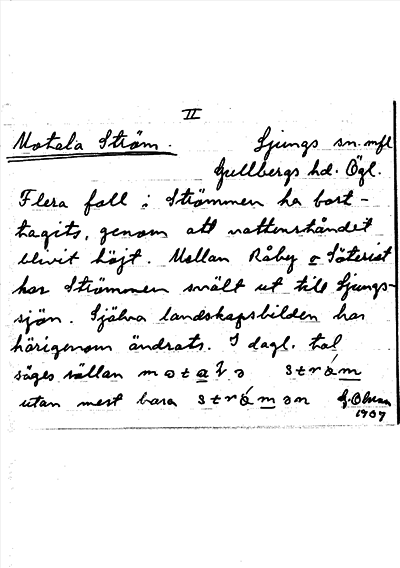 II
Motala Ström. Ljungs sn. mfl
Gullbergs hd. Ögl.
Flera fall i Strömmen ha bort-
tagits, genom att vattenståndet
blivit höjt. Mellan Råby o
har Strömmen svält ut till Ljungs-
sjön. Själva landskapsbilden har
härigenom ändrats. I dagl. tal
säges sällan
utan mest bara
1907